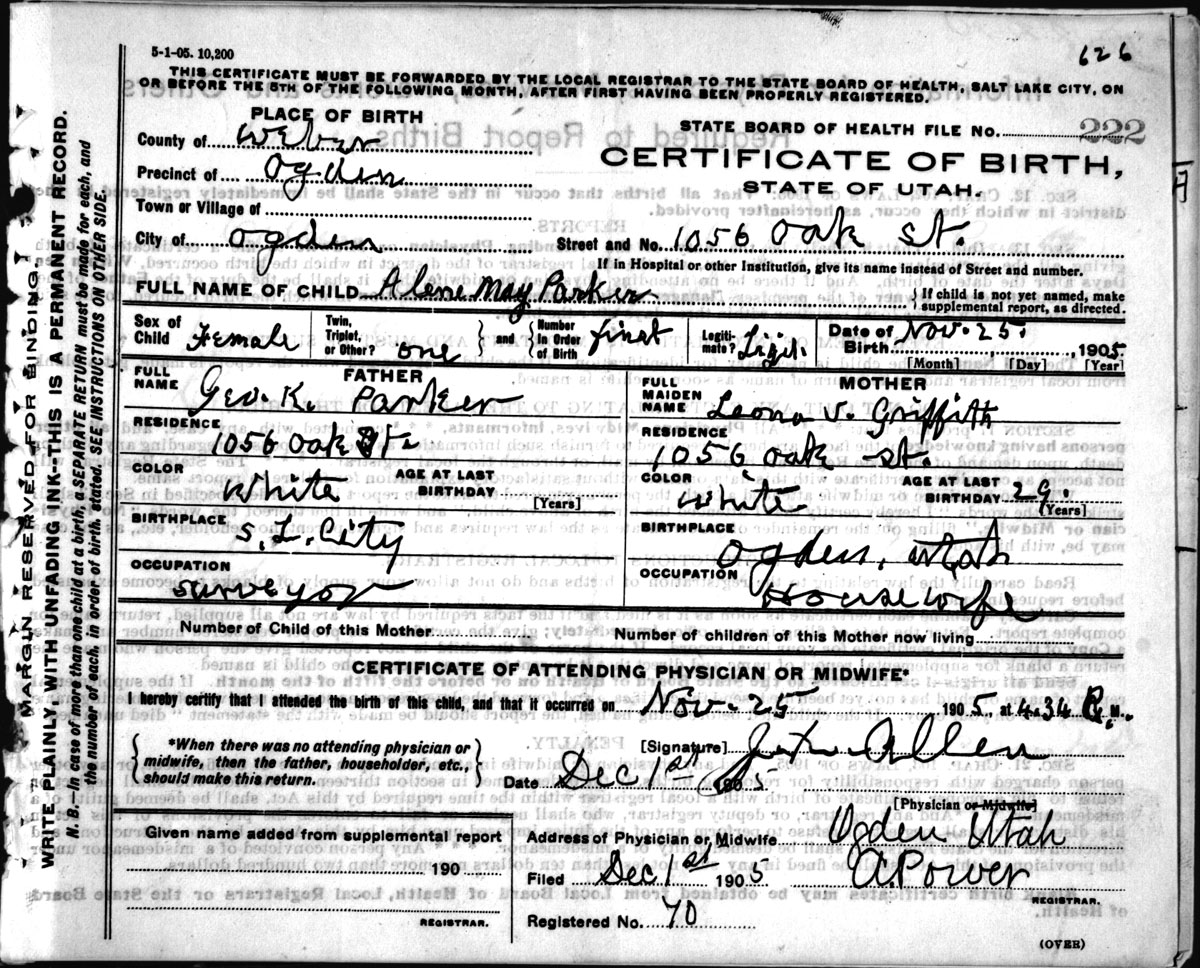 5-1-05. 10,200
626
THIS CERTIFICATE MUST BE FORWARDED BY THE LOCAL REGISTRAR TO THE STATE BOARD OF HEALTH, SALT LAKE CITY, ON
OR BEFORE THE 5TH OF THE FOLLOWING MONTH, AFTER FIRST HAVING BEEN PROPERLY REGISTERED.
PLACE OF BIRTH
STATE BOARD OF HEALTH FILE No. 222
County of Weber
CERTIFICATE OF BIRTH,
Precinct of Ogden
STATE OF UTAH.
Town or Village of
City of Ogden
Street and No. 1056 Oak st.
If in Hospital or other Institution, give its name instead of Street and number.
FULL NAME OF CHILD Alene May Parker
{ If child is not yet named, make
supplemental report, as directed.
Sex of Child Female
Twin, Triplet, or Other? one
} and { Number In Order of Birth first
Legiti- mate? Legit.
Date of Birth Nov. 25. , 1905.
[Month] [Day] [Year]
FATHER
FULL NAME Geo. K. Parker
RESIDENCE
1056 Oak St
COLOR White
AGE AT LAST BIRTHDAY
[Years]
BIRTHPLACE
S. L. City
OCCUPATION
Surveyor
MOTHER
FULL MAIDEN NAME Leona V. Griffith
RESIDENCE
1056 Oak st.
COLOR White
AGE AT LAST BIRTHDAY 29.
(Years)
BIRTHPLACE
Ogden, Utah
OCCUPATION Housewife
Number of Child of this Mother
Number of children of this Mother now living
CERTIFICATE OF ATTENDING PHYSICIAN OR MIDWIFE*
I hereby certify that I attended the birth of this child, and that it occurred on Nov. 25 1905, at 4.34 P. M.
{ *When there was no attending physician or
midwife, then the father, householder, etc.,
should make this return. }
[Signature] Allen
Date Dec 1st 1905
[Physician or Midwife]
Given name added from supplemental report
190
REGISTRAR.
Address of Physician or Midwife Ogden Utah
Filed Dec 1st 1905 A. Power
REGISTRAR.
Registered No. 70
(OVER)
MARGIN RESERVED FOR BINDING!
WRITE PLAINLY, WITH UNFADING INK--THIS IS A PERMANENT RECORD.
N. B. In case of more than one child at a birth, a SEPARATE RETURN must be made for each, and
the number of each, in order of birth, stated. SEE INSTRUCTIONS ON OTHER SIDE.